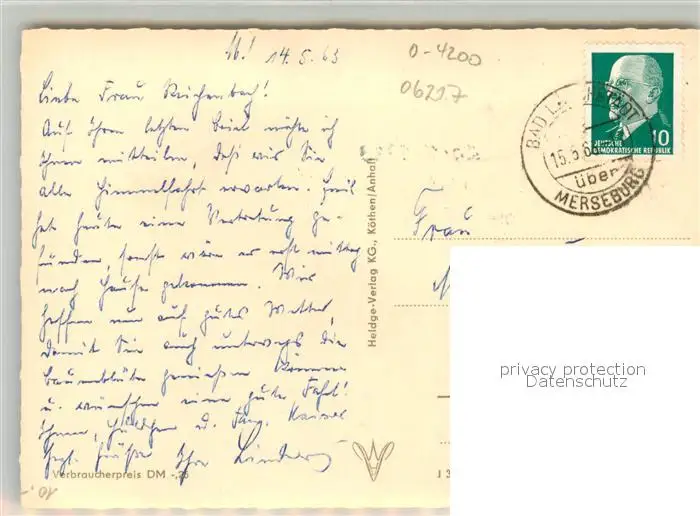 M.! 14.5.63
Liebe Frau Reichenbach!
Auf Ihren letzten Brief möchte ich
Ihnen mitteilen, daß wir Sie
alle Himmelfahrt erwarten.
hat heute eine Vertretung ge-
funden, sonst wäre er erst mittag
nach Hause gekommen. Wir
hoffen nun auf gutes Wetter,
damit Sie auch unterwegs die
Baumblüte genießen können
u. wünschen eine gute Fahrt!
Ihnen, u. Fam. Kaiser
Hrzl. Grüße Ihre
Verbraucherpreis DM -,25
10,-
Heldge-Verlag KG., Köthen/Anhalt
0-4200
06217
Frau
BAD LAUCHSTÄDT
15.5.6
über
MERSEBURG
10
DEUTSCHE
DEMOKRATISCHE REPUBLIK
privacy protection
Datenschutz